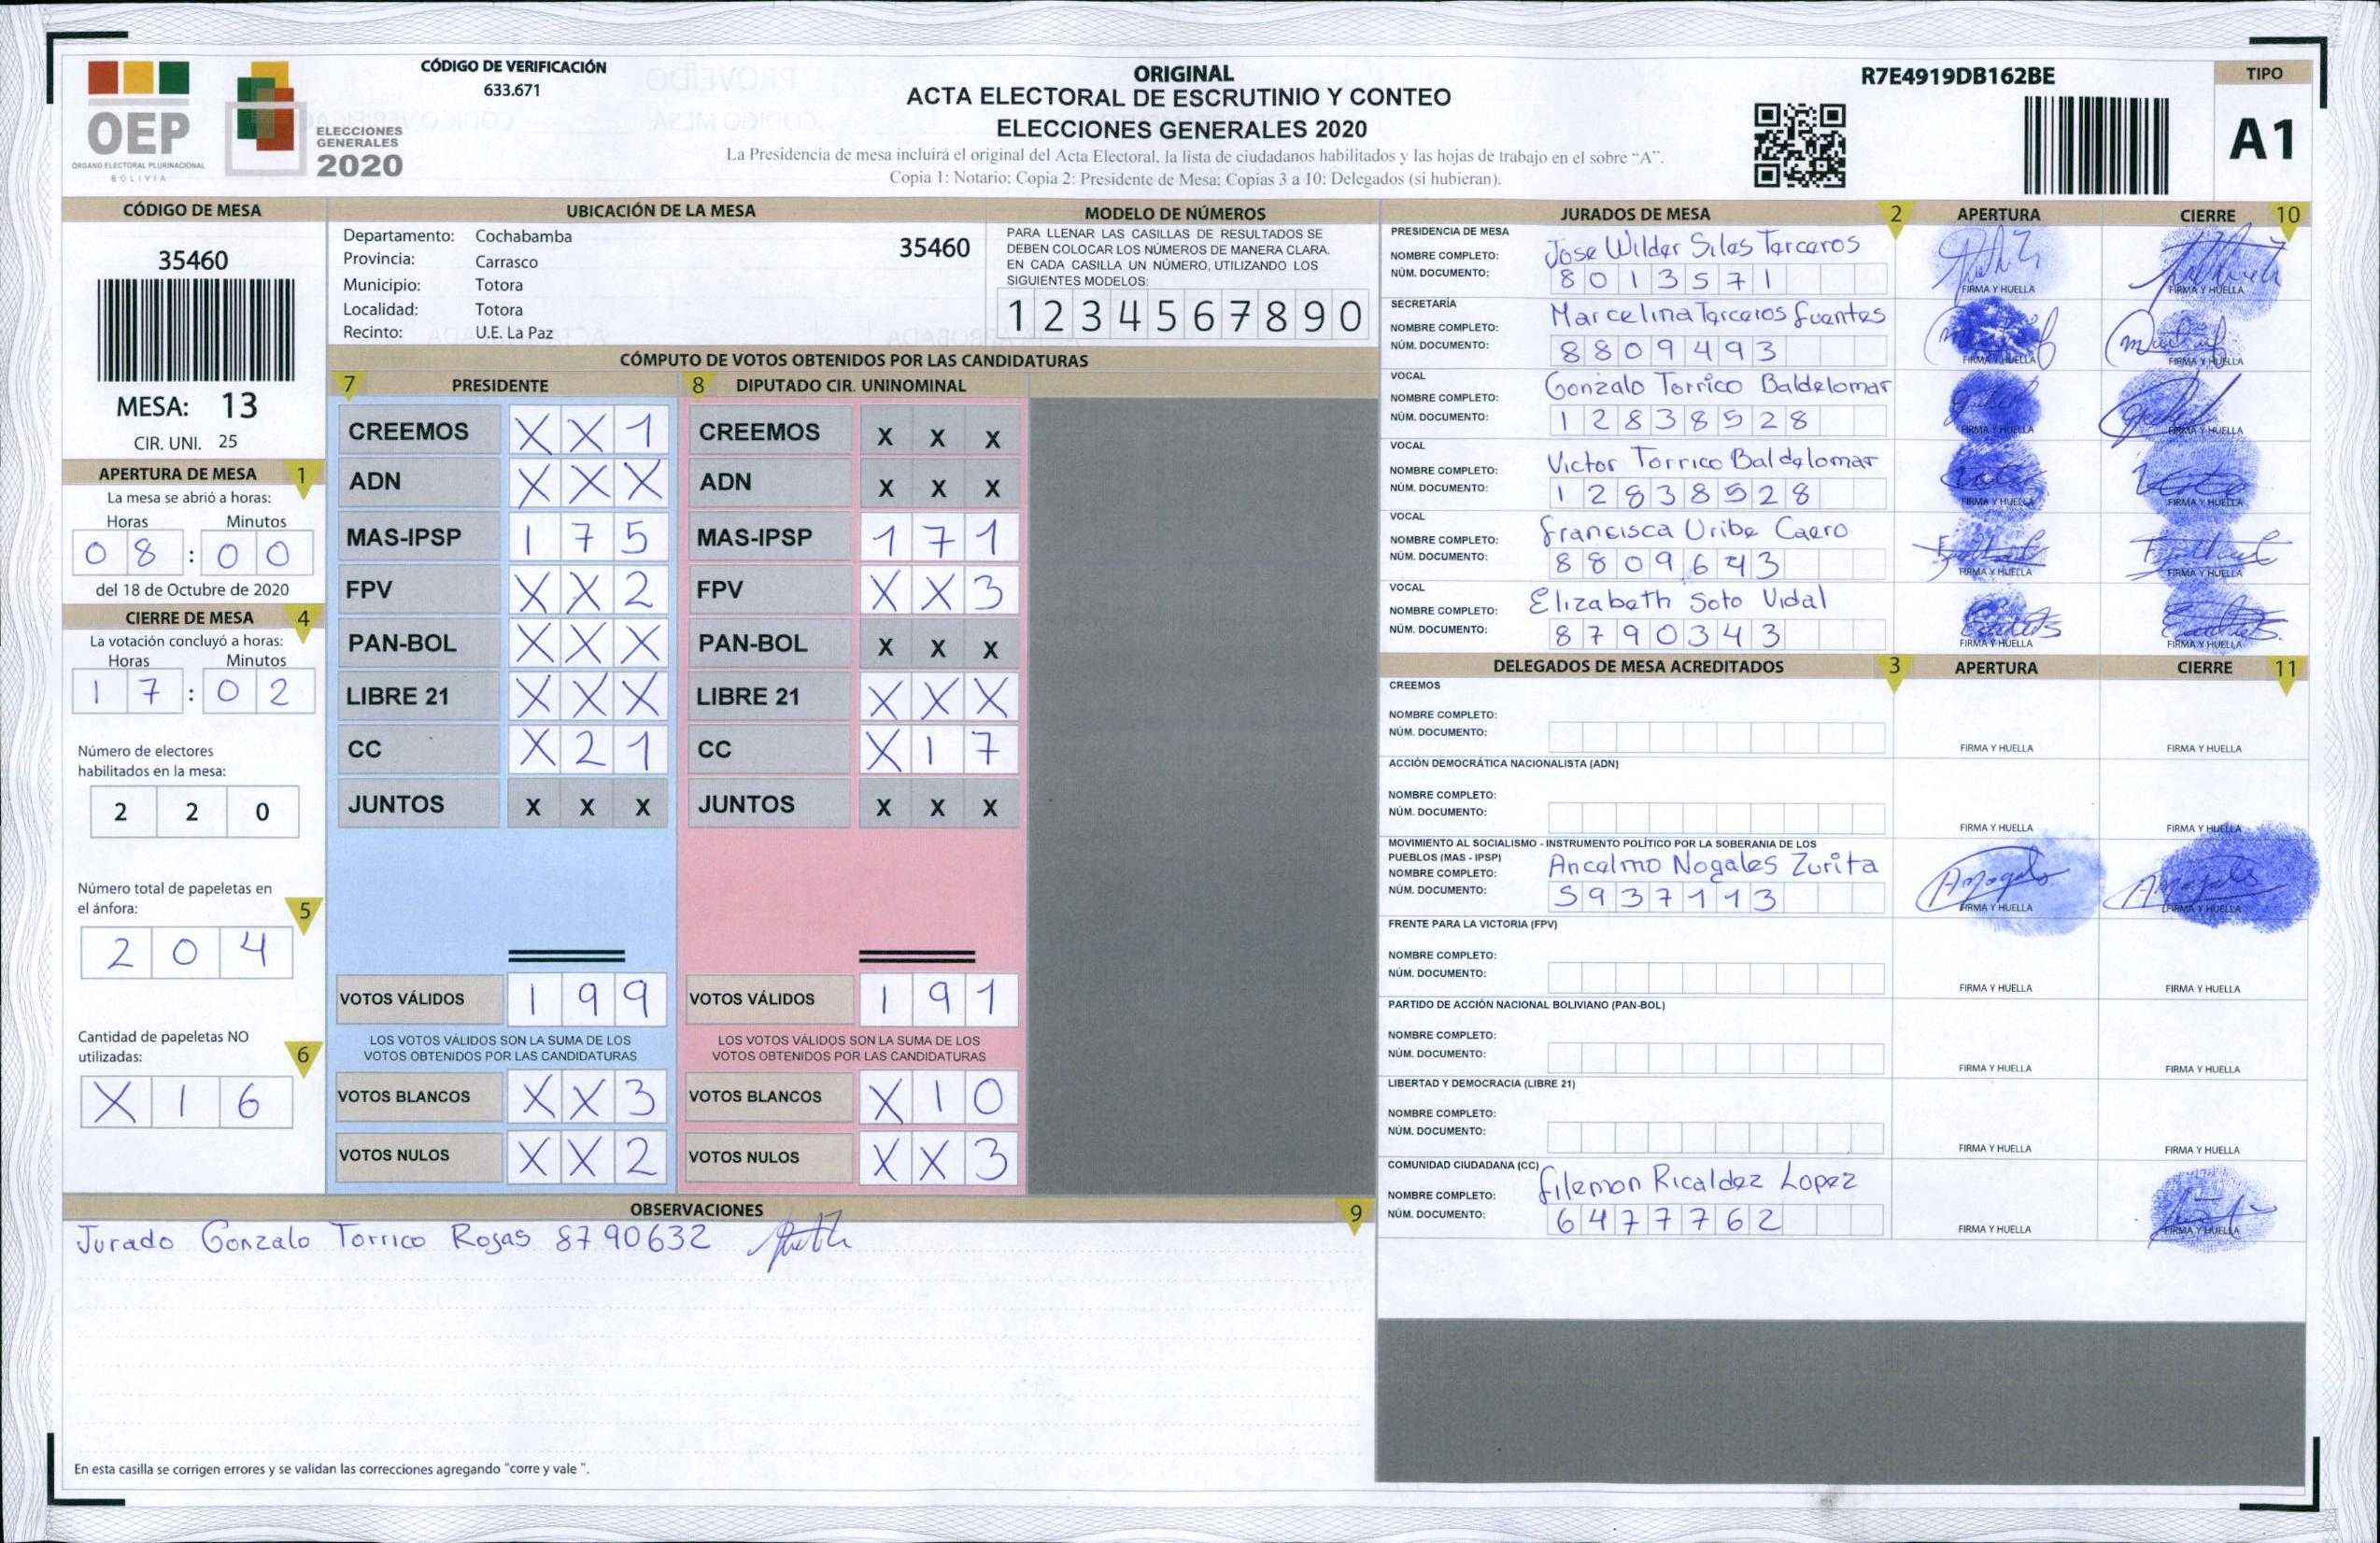 OEP
ÓRGANO ELECTORAL PLURINACIONAL
BOLIVIA
ELECCIONES
GENERALES
2020
CÓDIGO DE VERIFICACIÓN
633.671
ORIGINAL
ACTA ELECTORAL DE ESCRUTINIO Y CONTEO
ELECCIONES GENERALES 2020
La Presidencia de mesa incluirá el original del Acta Electoral, la lista de ciudadanos habilitados y las hojas de trabajo en el sobre “A”.
Copia 1: Notario; Copia 2: Presidente de Mesa; Copias 3 a 10: Delegados (si hubieran).
R7E4919DB162BE
TIPO
A1
CÓDIGO DE MESA
35460
MESA: 13
CIR. UNI. 25
APERTURA DE MESA 1
La mesa se abrió a horas:
Horas Minutos
0 8 : 0 0
del 18 de Octubre de 2020
CIERRE DE MESA 4
La votación concluyó a horas:
Horas Minutos
1 7 : 0 2
Número de electores
habilitados en la mesa:
2 2 0
Número total de papeletas en
el ánfora: 5
2 0 4
Cantidad de papeletas NO
utilizadas: 6
X 1 6
UBICACIÓN DE LA MESA
Departamento: Cochabamba 35460
Provincia: Carrasco
Municipio: Totora
Localidad: Totora
Recinto: U.E. La Paz
MODELO DE NÚMEROS
PARA LLENAR LAS CASILLAS DE RESULTADOS SE
DEBEN COLOCAR LOS NÚMEROS DE MANERA CLARA.
EN CADA CASILLA UN NÚMERO, UTILIZANDO LOS
SIGUIENTES MODELOS:
1 2 3 4 5 6 7 8 9 0
CÓMPUTO DE VOTOS OBTENIDOS POR LAS CANDIDATURAS
7 PRESIDENTE
CREEMOS X X 1
ADN X X X
MAS-IPSP 1 7 5
FPV X X 2
PAN-BOL X X X
LIBRE 21 X X X
CC X 2 1
JUNTOS X X X
VOTOS VÁLIDOS 1 9 9
LOS VOTOS VÁLIDOS SON LA SUMA DE LOS
VOTOS OBTENIDOS POR LAS CANDIDATURAS
VOTOS BLANCOS X X 3
VOTOS NULOS X X 2
8 DIPUTADO CIR. UNINOMINAL
CREEMOS X X X
ADN X X X
MAS-IPSP 1 7 1
FPV X X 3
PAN-BOL X X X
LIBRE 21 X X X
CC X 1 7
JUNTOS X X X
VOTOS VÁLIDOS 1 9 1
LOS VOTOS VÁLIDOS SON LA SUMA DE LOS
VOTOS OBTENIDOS POR LAS CANDIDATURAS
VOTOS BLANCOS X 1 0
VOTOS NULOS X X 3
OBSERVACIONES 9
Jurado Gonzalo Torrico Rojas 8790632
En esta casilla se corrigen errores y se validan las correcciones agregando "corre y vale ".
JURADOS DE MESA 2 APERTURA CIERRE 10
PRESIDENCIA DE MESA
NOMBRE COMPLETO: Jose Wilder Silas Tarceros
NÚM. DOCUMENTO: 8 0 1 3 5 7 1
FIRMA Y HUELLA FIRMA Y HUELLA
SECRETARÍA
NOMBRE COMPLETO: Marcelina Tarceros fuentes
NÚM. DOCUMENTO: 8 8 0 9 4 9 3
FIRMA Y HUELLA FIRMA Y HUELLA
VOCAL
NOMBRE COMPLETO: Gonzalo Torrico Baldelomar
NÚM. DOCUMENTO: 1 2 8 3 8 5 2 8
FIRMA Y HUELLA FIRMA Y HUELLA
VOCAL
NOMBRE COMPLETO: Victor Torrico Baldelomar
NÚM. DOCUMENTO: 1 2 8 3 8 5 2 8
FIRMA Y HUELLA FIRMA Y HUELLA
VOCAL
NOMBRE COMPLETO: francisca Uribe Caero
NÚM. DOCUMENTO: 8 8 0 9 6 4 3
FIRMA Y HUELLA FIRMA Y HUELLA
VOCAL
NOMBRE COMPLETO: Elizabeth Soto Vidal
NÚM. DOCUMENTO: 8 7 9 0 3 4 3
FIRMA Y HUELLA FIRMA Y HUELLA
DELEGADOS DE MESA ACREDITADOS 3 APERTURA CIERRE 11
CREEMOS
NOMBRE COMPLETO:
NÚM. DOCUMENTO:
FIRMA Y HUELLA FIRMA Y HUELLA
ACCIÓN DEMOCRÁTICA NACIONALISTA (ADN)
NOMBRE COMPLETO:
NÚM. DOCUMENTO:
FIRMA Y HUELLA FIRMA Y HUELLA
MOVIMIENTO AL SOCIALISMO - INSTRUMENTO POLÍTICO POR LA SOBERANIA DE LOS
PUEBLOS (MAS - IPSP)
NOMBRE COMPLETO: Ancelmo Nogales Zurita
NÚM. DOCUMENTO: 5 9 3 7 1 1 3
FIRMA Y HUELLA FIRMA Y HUELLA
FRENTE PARA LA VICTORIA (FPV)
NOMBRE COMPLETO:
NÚM. DOCUMENTO:
FIRMA Y HUELLA FIRMA Y HUELLA
PARTIDO DE ACCIÓN NACIONAL BOLIVIANO (PAN-BOL)
NOMBRE COMPLETO:
NÚM. DOCUMENTO:
FIRMA Y HUELLA FIRMA Y HUELLA
LIBERTAD Y DEMOCRACIA (LIBRE 21)
NOMBRE COMPLETO:
NÚM. DOCUMENTO:
FIRMA Y HUELLA FIRMA Y HUELLA
COMUNIDAD CIUDADANA (CC)
NOMBRE COMPLETO: filemon Ricaldez Lopez
NÚM. DOCUMENTO: 6 4 7 7 7 6 2
FIRMA Y HUELLA FIRMA Y HUELLA